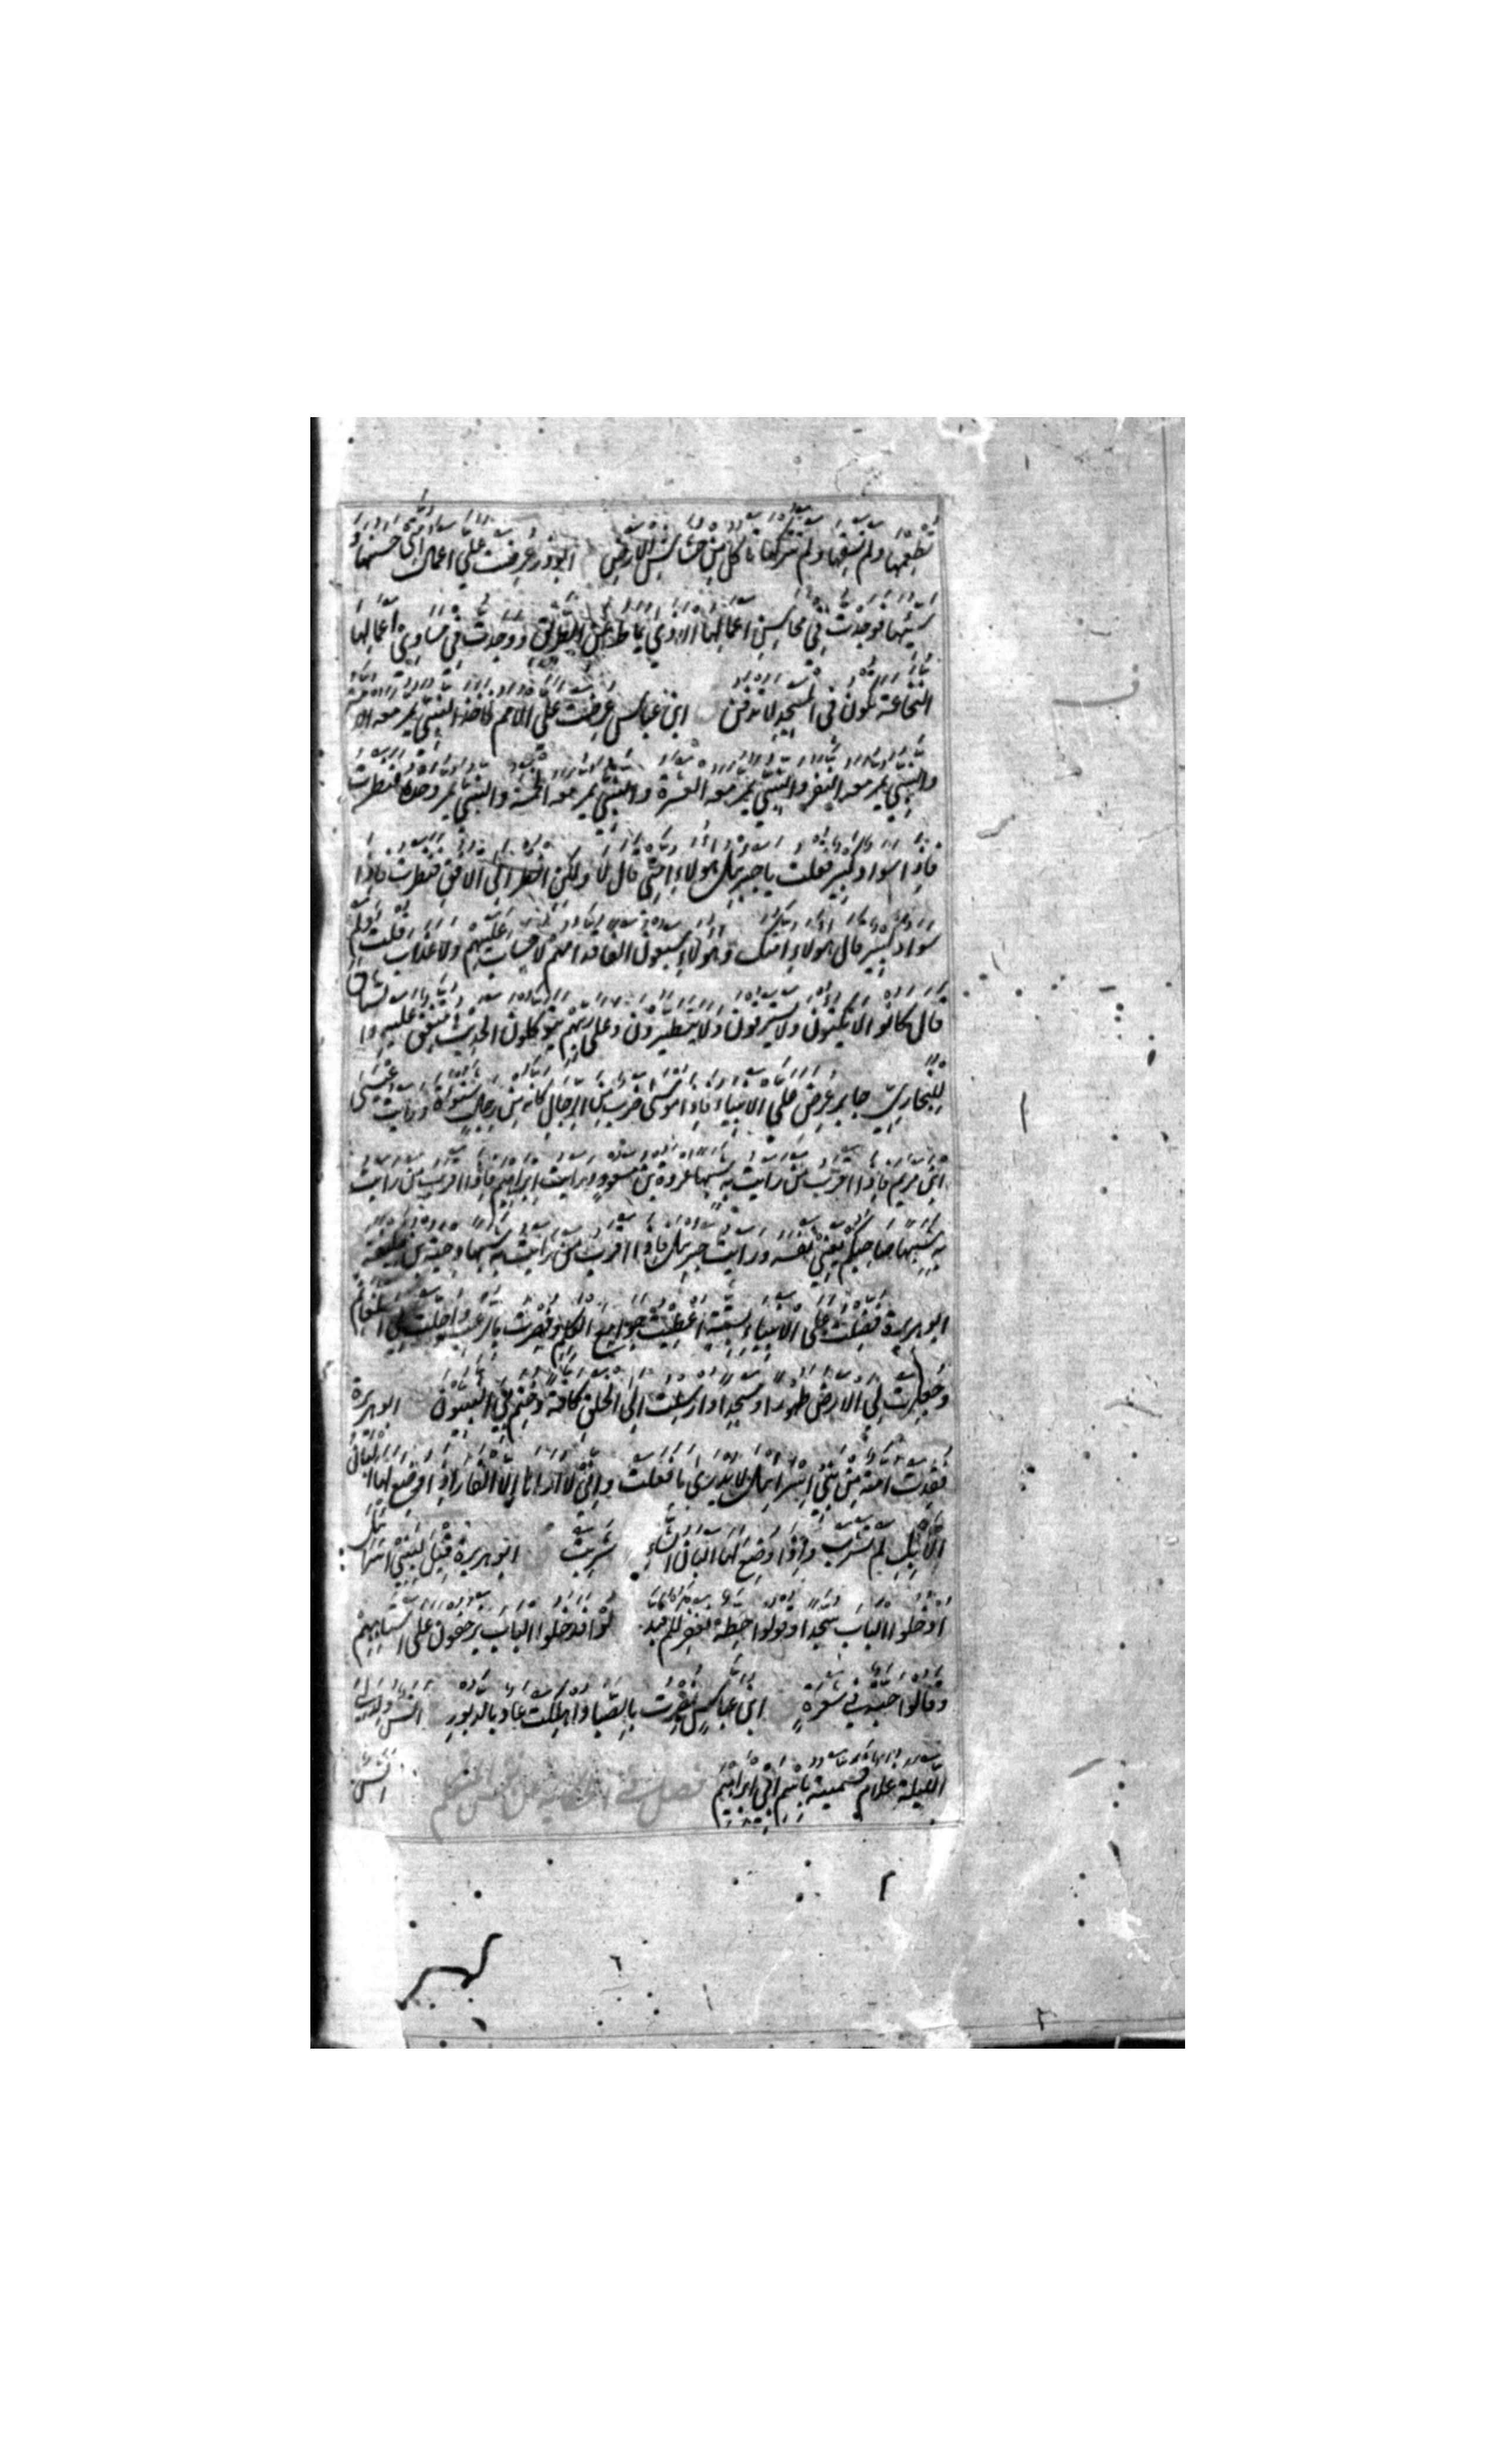 تطعمها ولم تسقها ولم تتركها تاكل من خشاش الارض ابوذر عرضت علي اعمال امتي حسنها و
سيئها فوجدت في محاسن اعمالها الاذى يماط عن الطريق ووجدت في مساوئ اعمالها
النخاعة تكون في المسجد لا تدفن ابن عباس عرضت على الامم فاخذ النبي يمر معه الامة
والنبي يمر معه النفر والنبي يمر معه العشرة والنبي يمر معه الخمسة والنبي يمر وحده فنظرت
فاذا سواد كبير فقلت يا جبرئيل هولاء امتي قال لا ولكن انظر الى الافق فنظرت فاذا
سواد كبير قال هولاء امتك وهولاء سبعون الفا قدامهم لا حساب عليهم ولا عذاب قلت ولم
قال كانوا لا يكتوون ولا يسترقون ولا يتطيرون وعلى ربهم يتوكلون الحديث متفق عليه و
للبخاري جابر عرض علي الانبياء فاذا موسى ضرب من الرجال كانه من رجال شنوءة ورايت عيسى
ابن مريم فاذا اقرب من رايت به شبها عروة بن مسعود ورايت ابراهيم فاذا اقرب من رايت
به شبها صاحبكم يعني نفسه ورايت جبرئيل فاذا اقرب من رايت به شبها دحية بن خليفة
ابو هريرة فضلت على الانبياء بستة اعطيت جوامع الكلم ونصرت بالرعب واحلت لي الغنائم
وجعلت لي الارض طهورا ومسجدا وارسلت الى الخلق كافة وختم بي النبيون ابو هريرة
فقدت امة من بني اسرائيل لا يدرى ما فعلت واني لا اراها الا الفار اذا وضع لها البان
الابل لم تشرب واذا وضع لها البان الشاء شربت ابو هريرة قيل لبني اسرائيل
ادخلوا الباب سجدا وقولوا حطة نغفر لكم فبدلوا فدخلوا الباب يزحفون على استاههم
وقالوا حبة في شعرة ابن عباس نصرت بالصبا واهلكت عاد بالدبور انس ولد لي
الليلة غلام فسميته باسم ابي ابراهيم فصل في انس